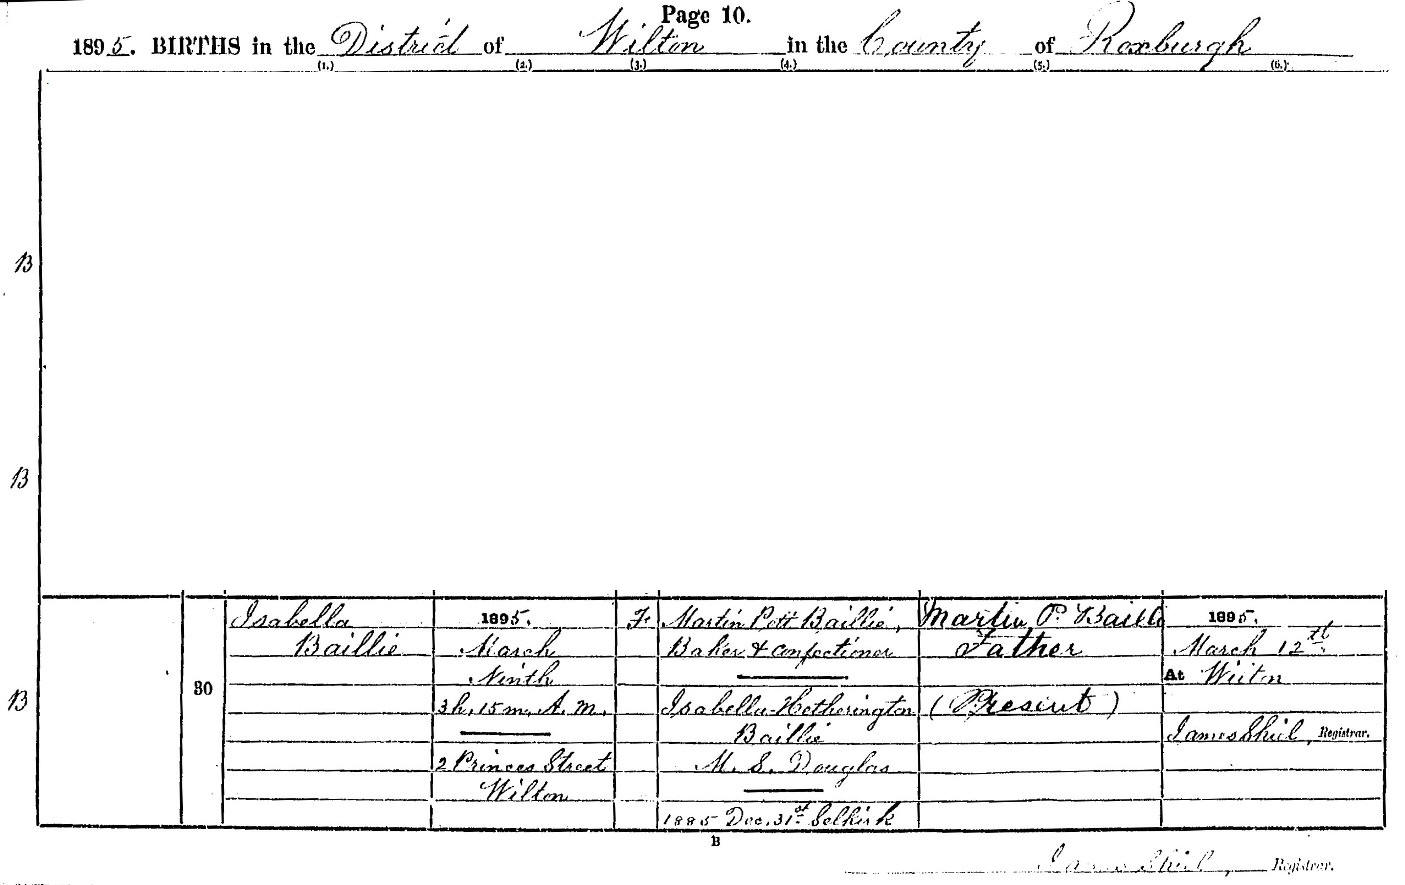 Page 10.
1895. BIRTHS in the District of Wilton in the County of Roxburgh
(1.) (2.) (3.) (4.) (5.) (6.)
B
B
B
30
Isabella
Baillie
1895.
March
Ninth
3h. 15m. A. M.
2 Princes Street
Wilton
F.
Martin Pott Baillie,
Baker & Confectioner
Isabella Hetherington
Baillie
M. S. Douglas
1885 Dec. 31st Selkirk
Martin P. Baillie
Father
(Present)
1895.
March 12th
At Wilton
James Shiel, Registrar.
B
James Shiel, Registrar.